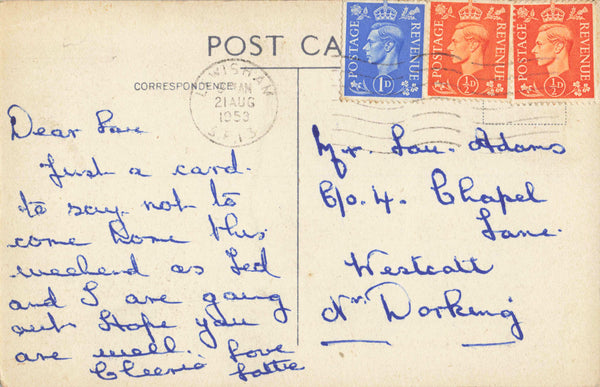 POST CA
CORRESPONDENCE
LEWISHAM
21 AUG
1953
S.E.13
POSTAGE REVENUE
1D
POSTAGE REVENUE
½D
POSTAGE REVENUE
½D
Dear Lou
Just a card
to say not to
come home this
weekend as Ted
and I are going
out. Hope you
are well.
Cheerio Love
Lottie
Mr. Lou. Adams
C/o. 4. Chapel
Lane.
Westcott
Nr. Dorking